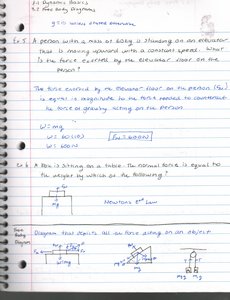 3.1 Dynamics Basics
3.2 Free Body Diagrams
g=10 unless stated otherwise
Ex 5 A person with a mass of 60kg is standing on an elevator
that is moving upward with a constant speed. What
is the force exerted by the elevator floor on the
person?
The force exerted by the elevator floor on the person (FN)
is equal in magnitude to the force needed to counteract
the force of gravity acting on the person.
W=mg
W= 60(10)
FN=600N
W= 600N
Ex 6 A box is sitting on a table. The normal force is equal to
the weight by which of the following?
FN
mg
Newtons 2nd Law
Free
Body
Diagram
Diagram that depicts all the force acting on an object
FN
mg
mg
mg
mg